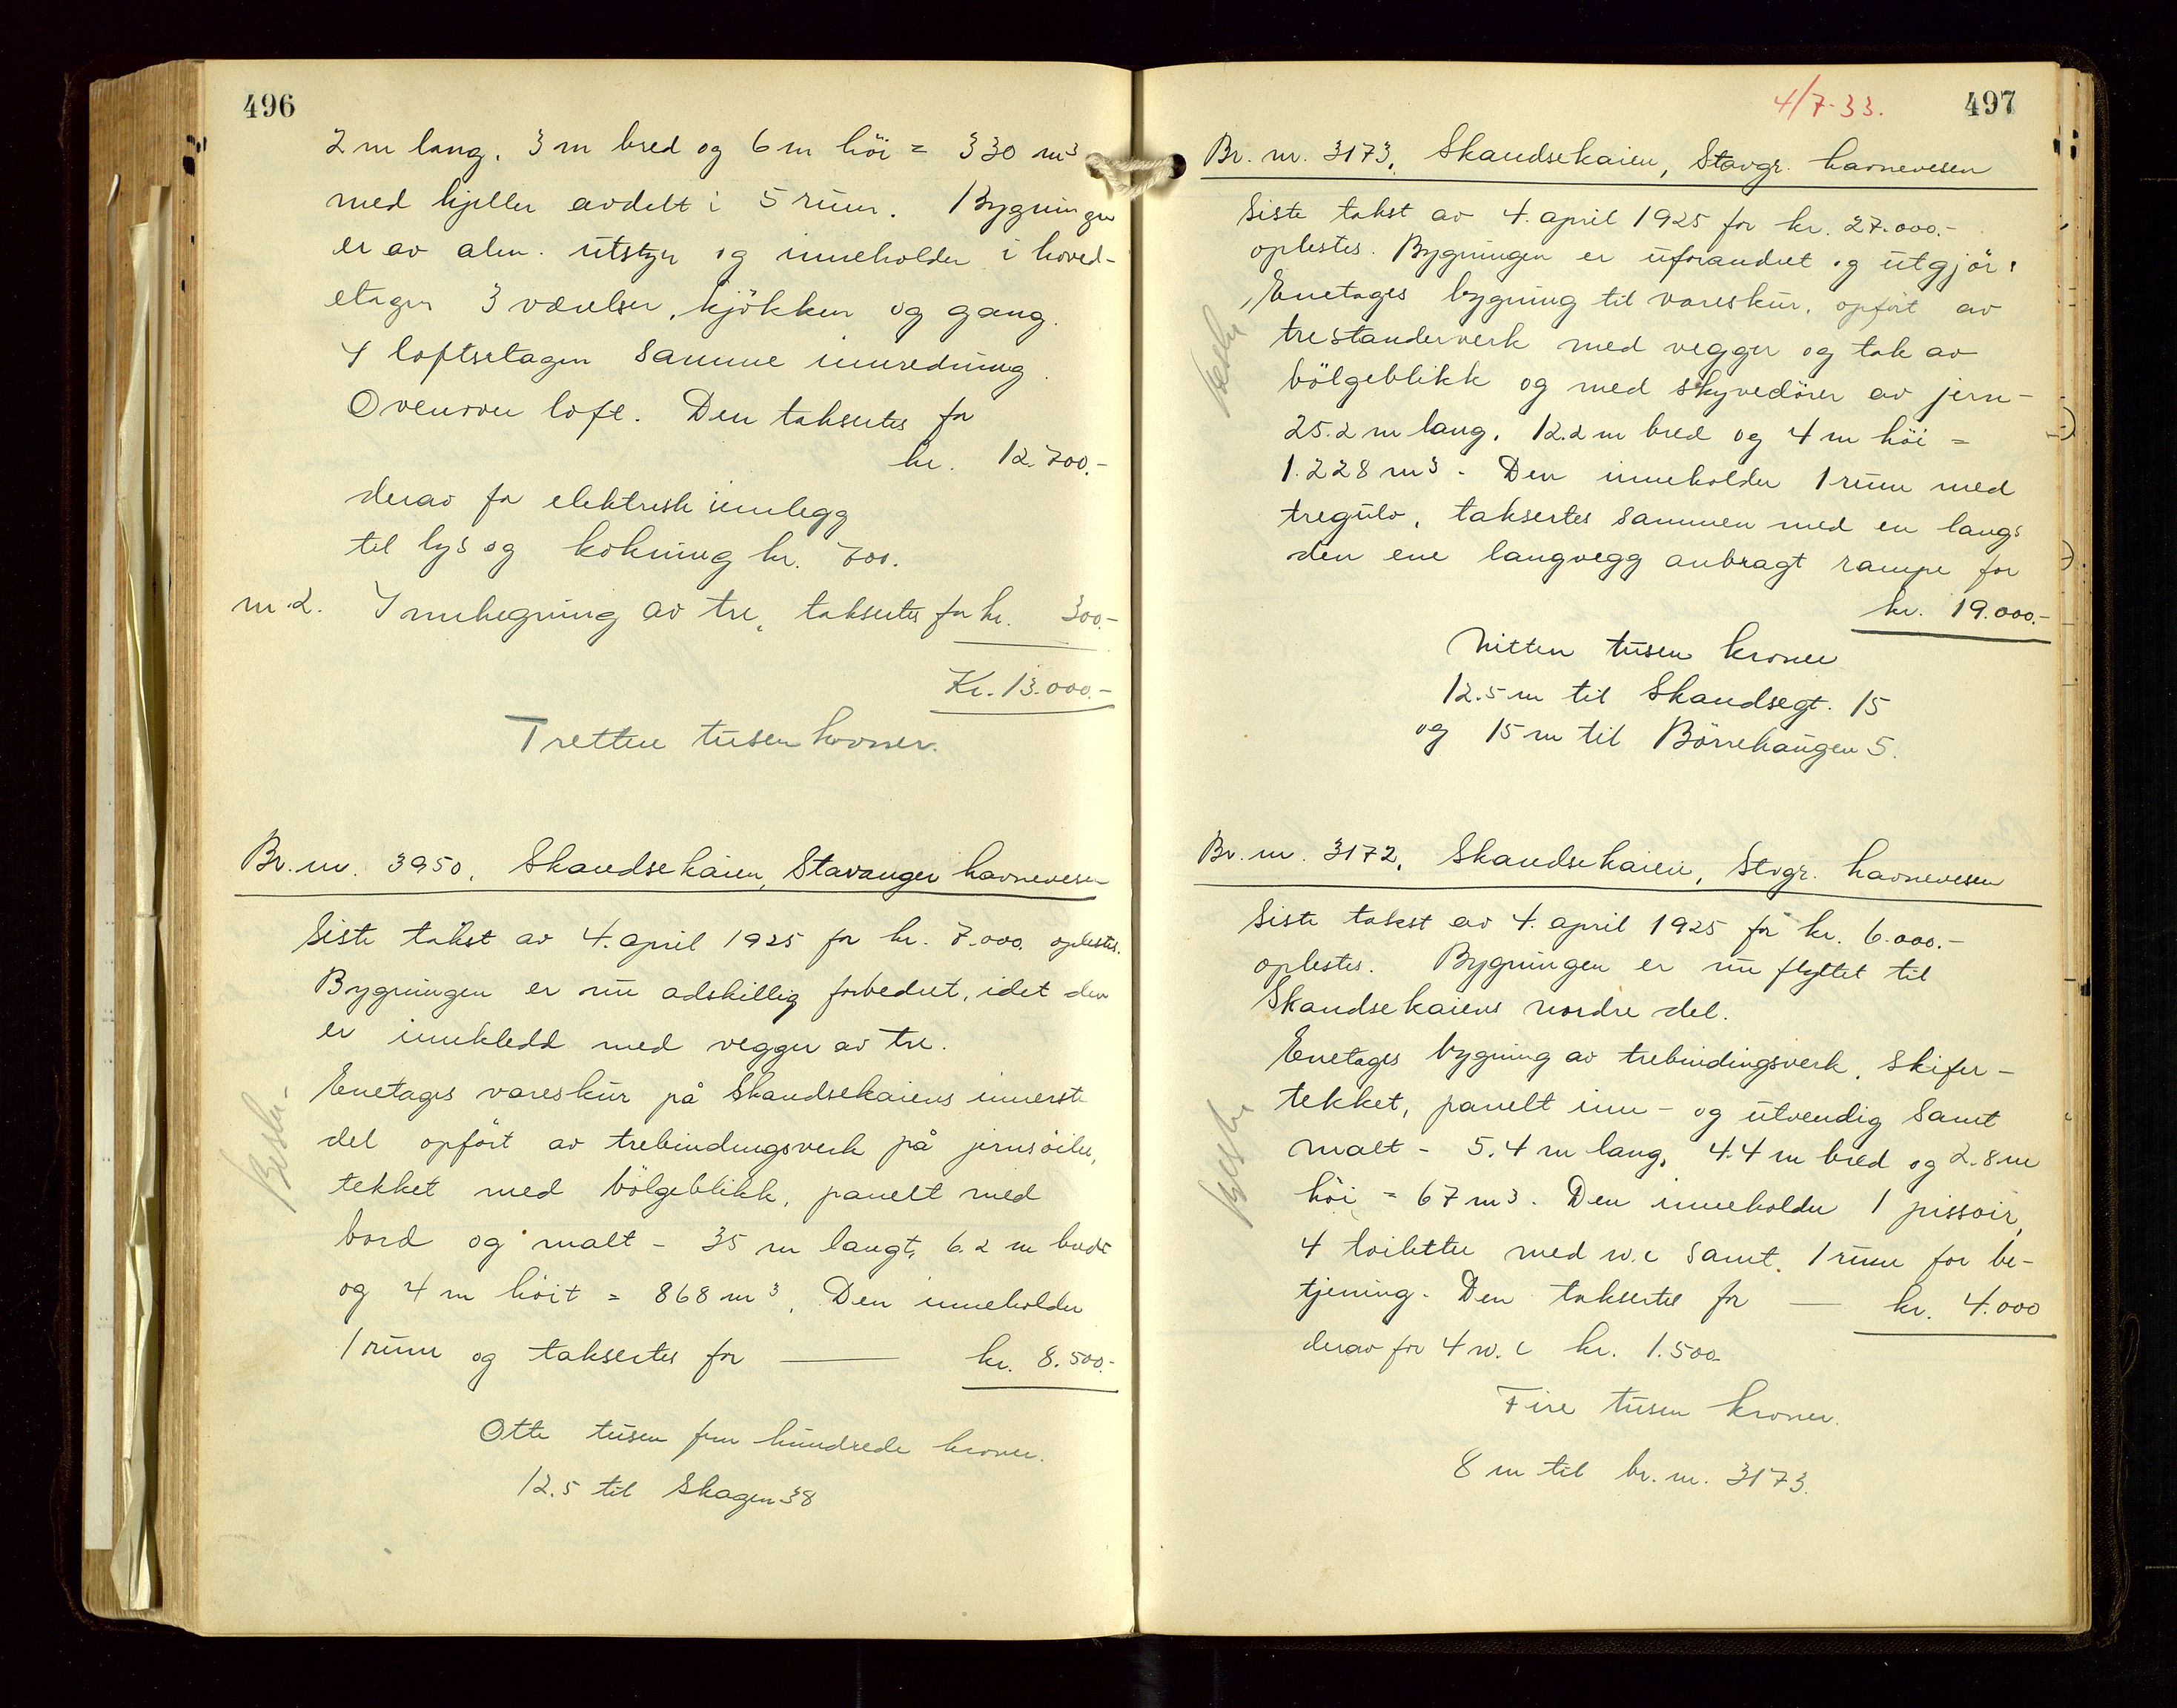 496
2 m lang, 3 m bred og 6 m höi = 330 m³
med kjeller avdelt i 5 rum. Bygningen
er av alm. utstyr og inneholder i hoved-
etagen 3 værelser, kjökken og gang.
I loftsetagen samme innredning.
Ovenover loft. Den takseres for
kr. 12.700.-
derav for elektrisk innlegg
til lys og kokning kr. 700.
m 2. Innhegning av tre, takseres for kr. 300.-
Kr. 13.000.-
Tretten tusen kroner.
Br. nr. 3950, Skandsekaien, Stavanger havnevesen
Siste takst av 4. april 1925 for kr. 7.000. oplestes.
Bygningen er nu adskillig forbedret, idet den
er innkledd med vegger av tre.
Enetages vareskur på Skandsekaiens innerste
del opfört av trebindingsverk på jernsöiler,
tekket med bölgeblikk, panelt med
bord og malt - 35 m langt, 6.2 m bredt
og 4 m höit = 868 m³. Den inneholder
1 rum og taksertes for — kr. 8.500.-
Otte tusen fem hundrede kroner.
12.5 til Skagen 38
4/7-33.
497
Br. nr. 3173, Skandsekaien, Stavgr. havnevesen
Siste takst av 4. april 1925 for kr. 27.000.-
oplestes. Bygningen er uforandret og utgjör:
Enetages bygning til vareskur, opfört av
trestanderverk med vegger og tak av
bölgeblikk og med skyvedörer av jern -
25.2 m lang, 12.2 m bred og 4 m höi =
1.228 m³. Den inneholder 1 rum med
tregulv, taksertes sammen med en langs
den ene langvegg anbragt rampe for
kr. 19.000.-
Nitten tusen kroner
12.5 m til Skandsegt. 15
og 15 m til Börrehaugen 5.
Br. nr. 3172, Skandsekaien, Stvgr. havnevesen
Siste takst av 4. april 1925 for kr. 6.000.-
oplestes. Bygningen er nu flyttet til
Skandsekaiens nordre del.
Enetages bygning av trebindingsverk, skifer-
tekket, panelt inn- og utvendig samt
malt - 5.4 m lang, 4.4 m bred og 2.8 m
höi = 67 m³. Den inneholder 1 pissoir,
4 toiletter med w.c samt 1 rum for be-
tjening. Den taksertes for — kr. 4.000
derav for 4 w.c kr. 1.500.
Fire tusen kroner.
8 m til br. nr. 3173.